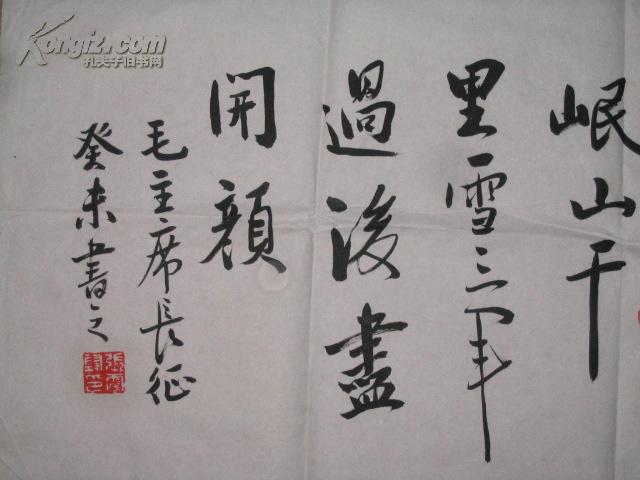 岷山千
里雪三军
過後盡
開顔
毛主席長征
癸未書之
Kongfz.com
孔夫子旧书网